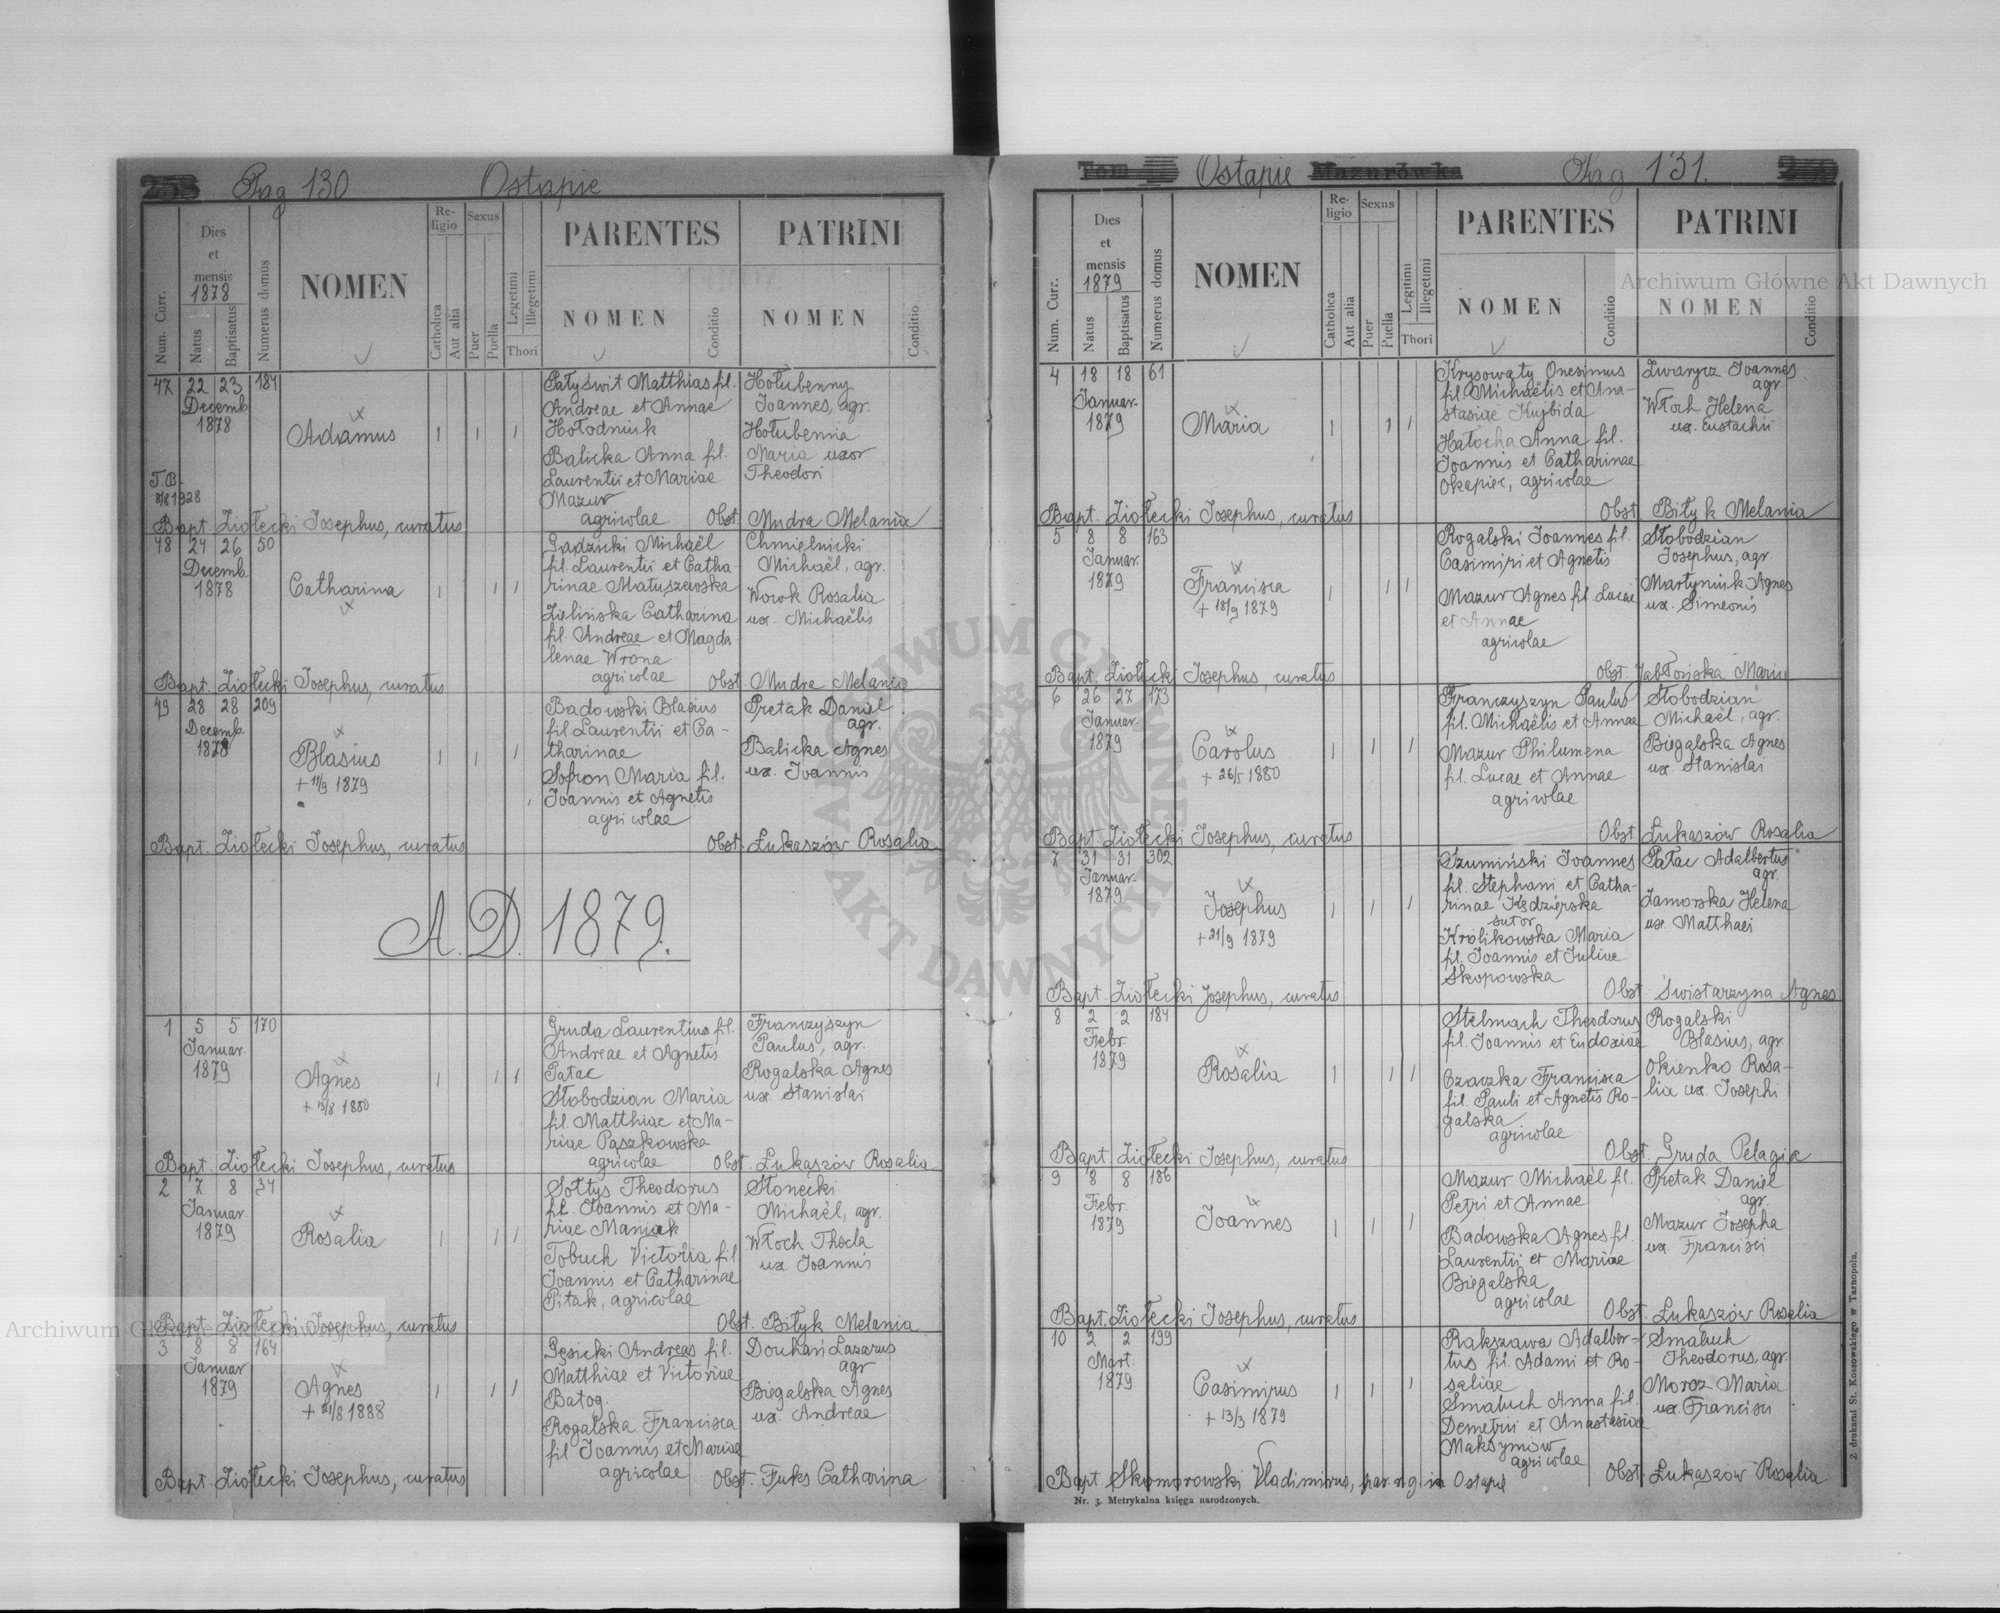 Pag 130 Ostapie
Num. Curr.
Dies et mensis 1878
Natus
Baptisatus
Numerus domus
NOMEN
Religio
Catholica
Aut alia
Sexus
Puer
Puella
Legetimi
Illegetimi
Thori
PARENTES
NOMEN
Conditio
PATRINI
NOMEN
Conditio
47 22 23 184
Decemb.
1878
Adamus
T.B.
8/8 1928
Pałyświt Matthias fil.
Andreae et Annae
Hołodniuk
Balicka Anna fil.
Laurentii et Mariae
Mazur
agricolae
Hołubenny
Joannes, agr.
Hołubennia
Maria uxor
Theodori
Bapt. Ziołecki Josephus, curatus
Obst. Mudra Melania
48 24 26 50
Decemb.
1878
Catharina
Gądzicki Michaël
fil. Laurentii et Catha-
rinae Matuszewska
Zielińska Catharina
fil. Andreae et Magda
lenae Wrona
agricolae
Chmielnicki
Michaël, agr.
Worok Rosalia
ux. Michaëlis
Bapt. Ziołecki Josephus, curatus
Obst. Mudra Melania
49 28 28 209
Decemb.
1878
Blasius
+ 11/9 1879
Badowski Blasius
fil. Laurentii et Ca-
tharinae
Sofron Maria fil.
Joannis et Agnetis
agricolae
Pretak Daniel
agr.
Balicka Agnes
ux. Joannis
Bapt. Ziołecki Josephus, curatus
Obst. Łukaszów Rosalia
A.D. 1879.
1 5 5 170
Januar.
1879
Agnes
+ 13/8 1880
Gruda Laurentius fil.
Andreae et Agnetis
Pałac
Słobodzian Maria
fil. Matthiae et Ma-
riae Paszkowska
agricolae
Franczyszyn
Paulus, agr.
Rogalska Agnes
ux. Stanislai
Bapt. Ziołecki Josephus, curatus
Obst. Łukaszów Rosalia
2 7 8 34
Januar.
1879
Rosalia
Sołtys Theodorus
fil. Joannis et Ma-
riae Maniak
Tobuch Victoria fil
Joannis et Catharinae
Pitak, agricolae
Słonecki
Michaël, agr.
Włoch Thecla
ux. Joannis
Bapt. Ziołecki Josephus, curatus
Obst. Biłyk Melania
3 8 8 164
Januar
1879
Agnes
+ 21/8 1888
Gęsicki Andreas fil.
Matthiae et Victoriae
Batog.
Rogalska Francisca
fil Joannis et Mariae
agricolae
Douhań Lazarus
agr
Biegalska Agnes
ux. Andreae
Bapt. Ziołecki Josephus, curatus
Obst. Fuks Catharina
Tom Ostapie Mazurówka Pag 131.
Num. Curr.
Dies et mensis 1879
Natus
Baptisatus
Numerus domus
NOMEN
Religio
Catholica
Aut alia
Sexus
Puer
Puella
Legitimi
Illegetimi
Thori
PARENTES
NOMEN
Conditio
PATRINI
NOMEN
Conditio
4 18 18 61
Januar.
1879
Maria
Krysowaty Onesimus
fil. Michaëlis et Ana-
stasiae Kujbida
Hałocha Anna fil.
Joannis et Catharinae
Okapiec, agricolae
Zwarycz Joannes
agr.
Włoch Helena
ux. Eustachii
Bapt. Ziołecki Josephus, curatus
Obst. Biłyk Melania
5 8 8 163
Januar.
1879
Francisca
+ 18/9 1879
Rogalski Joannes fil.
Casimiri et Agnetis
Mazur Agnes fil. Lucae
et Annae
agricolae
Słobodzian
Josephus, agr.
Martyniuk Agnes
ux. Simeonis
Bapt. Ziołecki Josephus, curatus
Obst. Jabłońska Maria
6 26 27 173
Januar.
1879
Carolus
+ 26/5 1880
Franczyszyn Paulus
fil. Michaëlis et Annae
Mazur Philumena
fil. Lucae et Annae
agricolae
Słobodzian
Michaël, agr.
Biegalska Agnes
ux. Stanislai
Bapt. Ziołecki Josephus, curatus
Obst. Łukaszów Rosalia
7 31 31 302
Januar.
1879
Josephus
+ 21/9 1879
Szumiński Joannes
fil. Stephani et Catha-
rinae Kędzierska
sutor
Królikowska Maria
fil. Joannis et Juliae
Skopowska
Pałac Adalbertus
agr.
Zamorska Helena
ux. Matthaei
Bapt. Ziołecki Josephus, curatus
Obst. Świstarzyna Agnes
8 2 2 184
Febr.
1879
Rosalia
Stelmach Theodorus
fil. Joannis et Eudoxiae
Czaczka Francisca
fil. Pauli et Agnetis Ro-
galska
agricolae
Rogalski
Blasius, agr
Okienko Rosa-
lia ux. Josephi
Bapt. Ziołecki Josephus, curatus
Obst. Gruda Pelagia
9 8 8 186
Febr.
1879
Joannes
Mazur Michaël fil.
Petri et Annae
Badowska Agnes fil.
Laurentii et Mariae
Biegalska
agricolae
Pretak Daniel
agr.
Mazur Josepha
ux. Francisci
Bapt. Ziołecki Josephus, curatus
Obst. Łukaszów Rosalia
10 2 2 199
Mart.
1879
Casimirus
+ 13/3 1879
Rakszawa Adalber-
tus fil. Adami et Ro-
saliae
Smaluch Anna fil.
Demetrii et Anastasiae
Maksymów
agricolae
Smaluch
Theodorus, agr.
Moroz Maria
ux. Francisci
Bapt. Skomorowski Vladimirus, par. r. g. in Ostapie
Obst. Łukaszów Rosalia
Nr. 3. Metrykalna księga narodzonych.
Z drukarni St. Kossowskiego w Tarnopolu.
Archiwum Główne Akt Dawnych
Archiwum Główne Akt Dawnych
ARCHIWUM GŁÓWNE AKT DAWNYCH